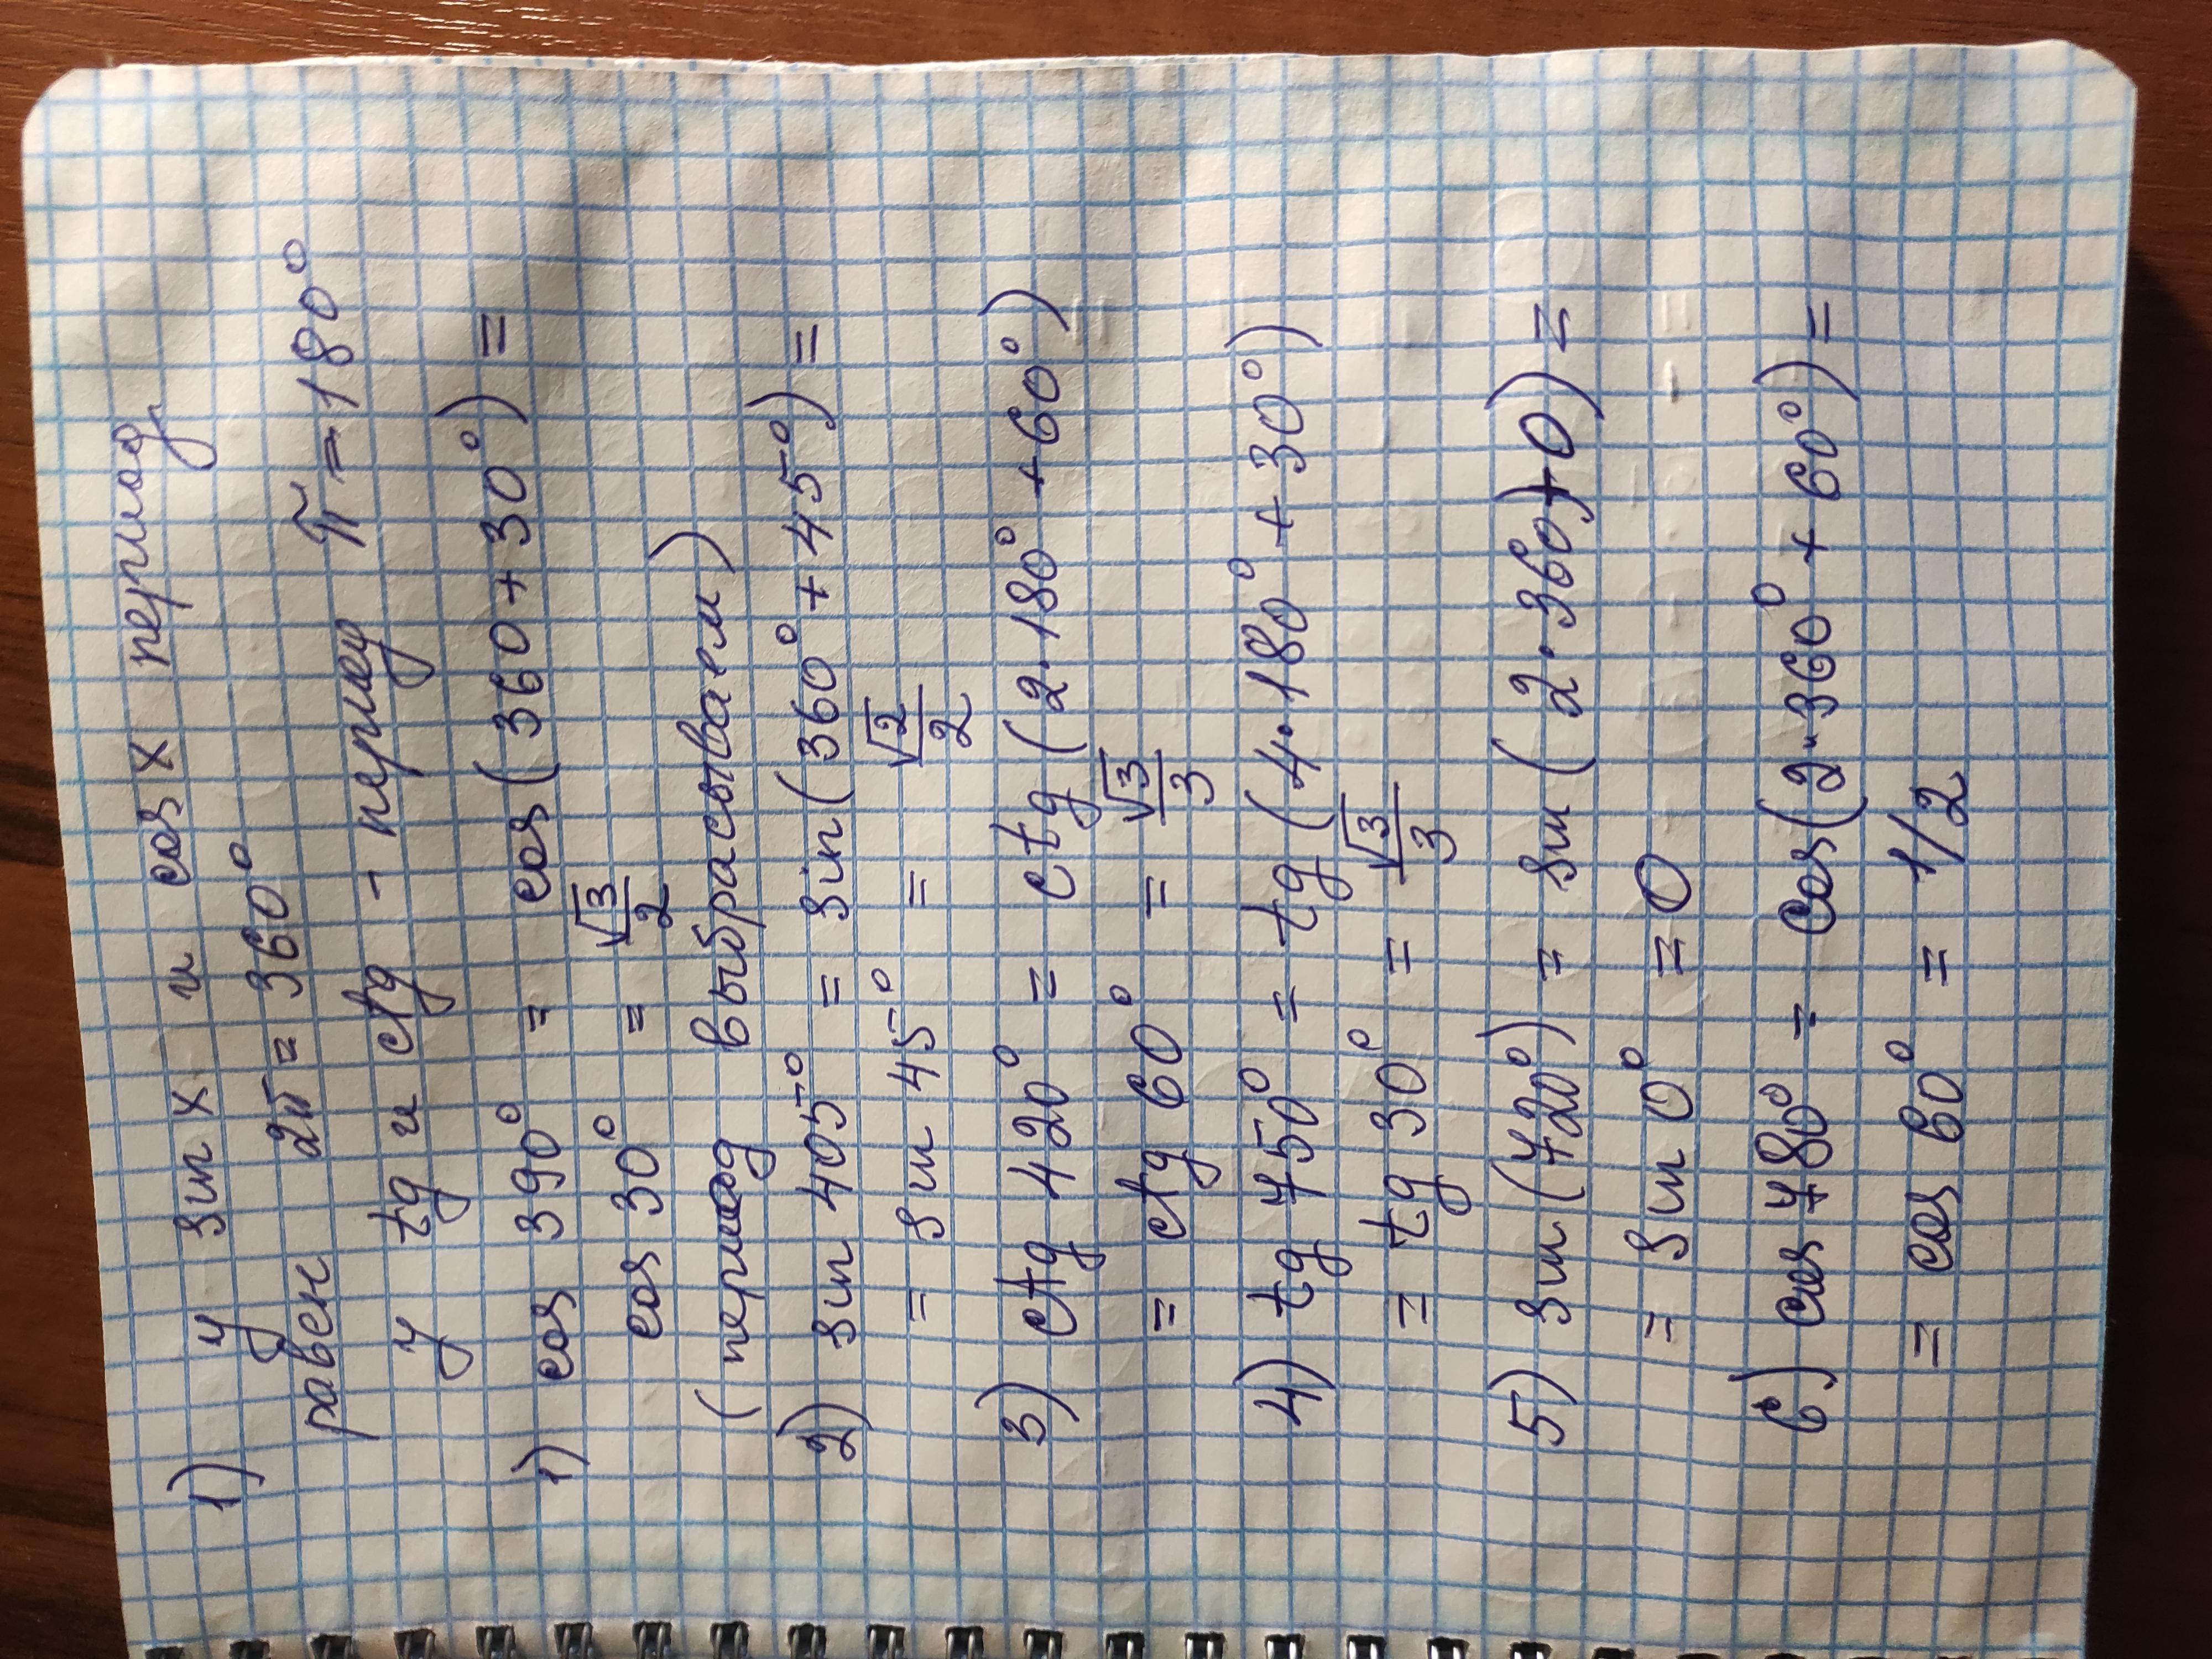 1) у sin x и cos x период
равен 2π = 360°
у tg и ctg - период π = 180°
1) cos 390° = cos (360 + 30°) =
cos 30° = √3/2
(период выбрасываем)
2) sin 405° = sin (360° + 45°) =
= sin 45° = √2/2
3) ctg 420° = ctg (2·180° + 60°)
= ctg 60° = √3/3
4) tg 750° = tg (4·180° + 30°)
= tg 30° = √3/3
5) sin (720°) = sin (2·360) + 0) =
= sin 0° = 0
6) cos 780° = cos (2·360° + 60°) =
= cos 60° = 1/2